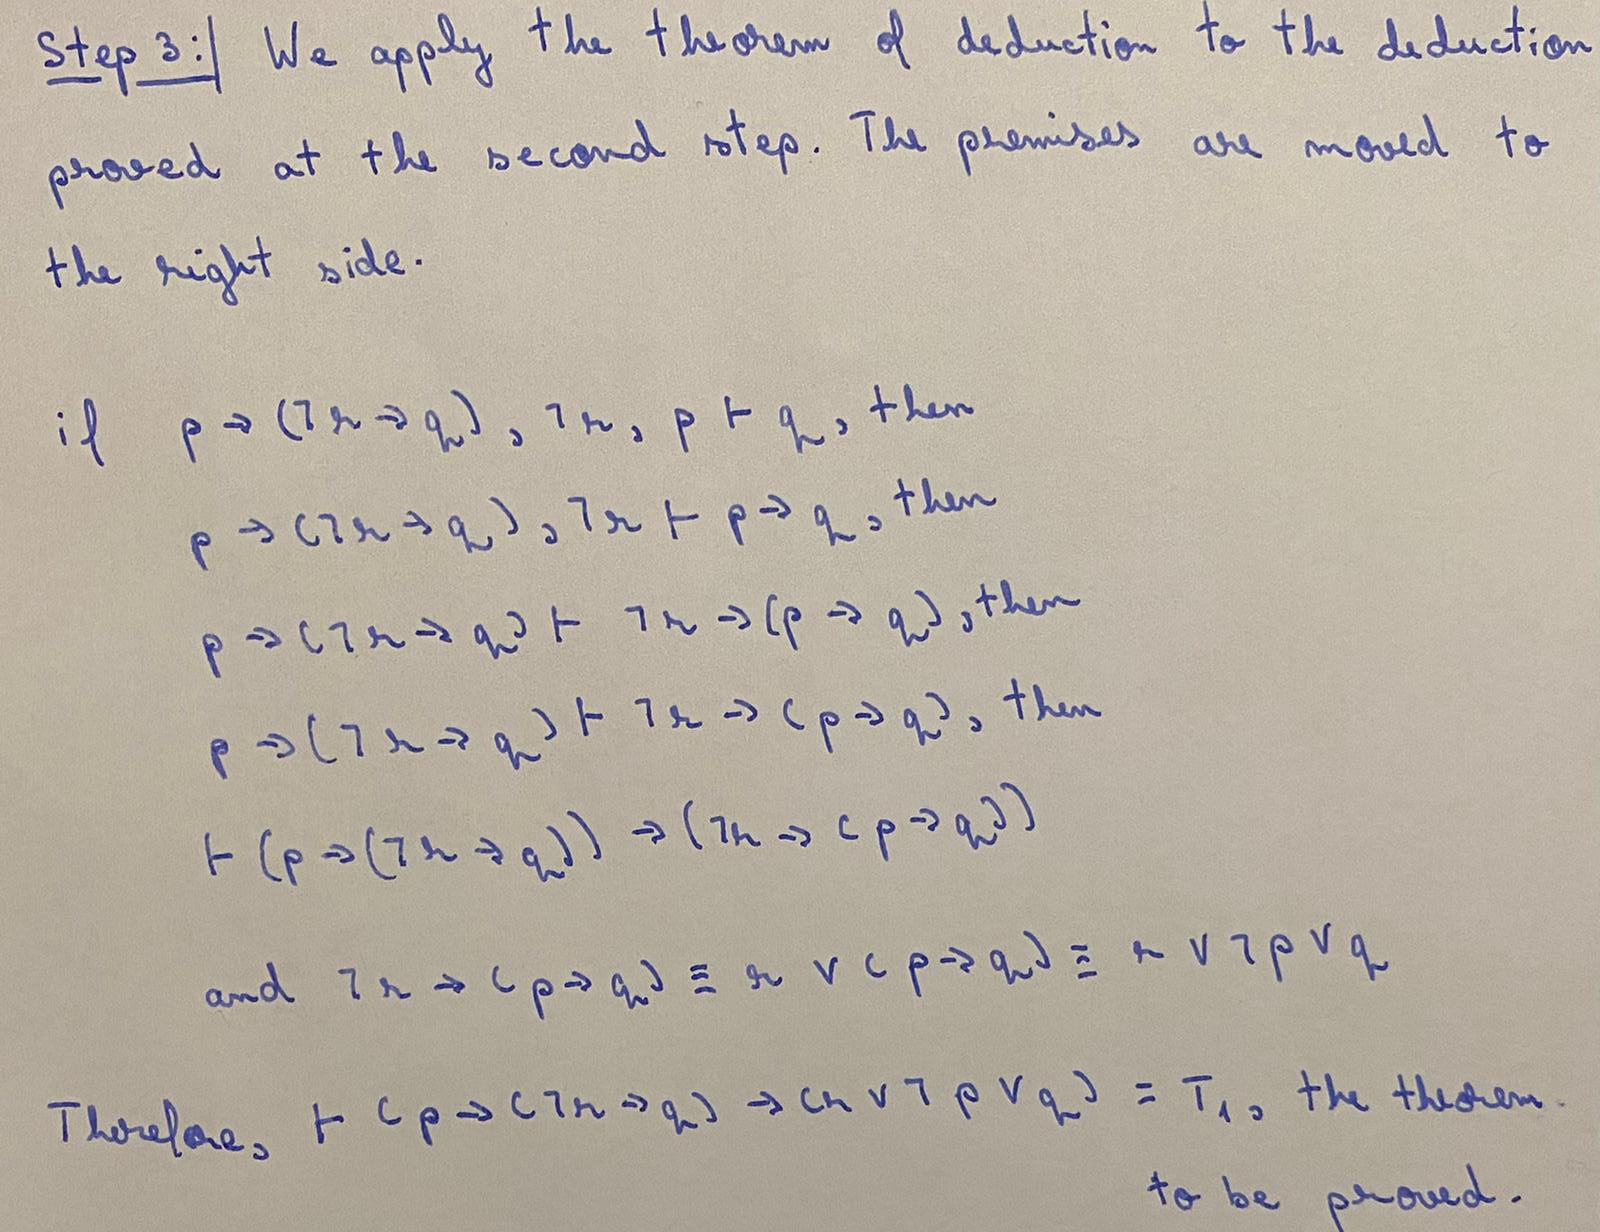 Step 3:| We apply the theorem of deduction to the deduction
proved at the second step. The premises are moved to
the right side.
if p → (¬r → q), ¬r, p ⊢ q, then
p → (¬r → q), ¬r ⊢ p → q, then
p → (¬r → q) ⊢ ¬r → (p → q), then
p → (¬r → q) ⊢ ¬r → (p → q), then
⊢ (p → (¬r → q)) → (¬r → (p → q))
and ¬r → (p → q) ≡ r ∨ (p → q) ≡ r ∨ ¬p ∨ q
Therefore, ⊢ (p → (¬r → q) → (r ∨ ¬p ∨ q) = T₁, the theorem
to be proved.